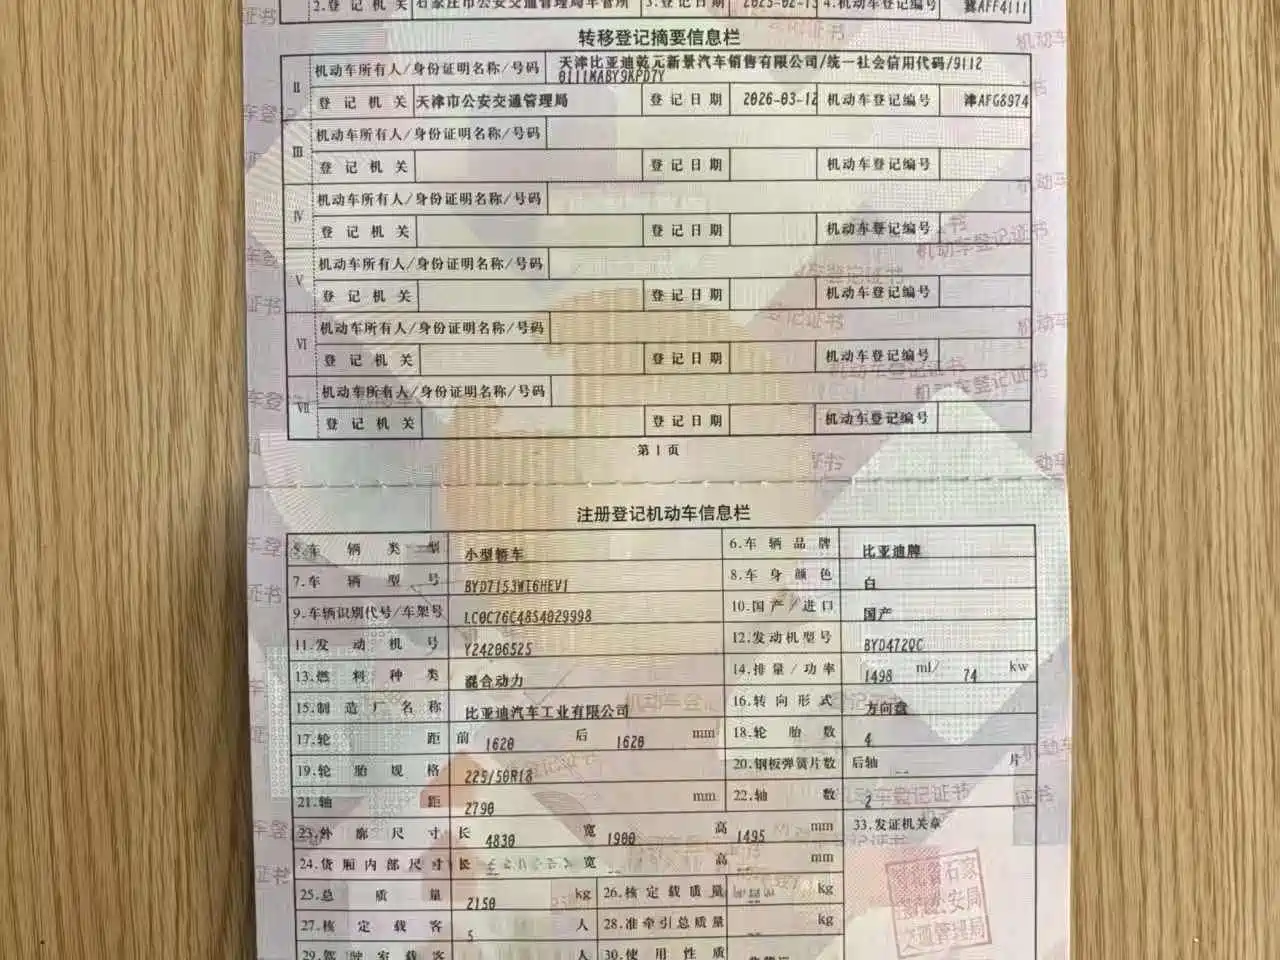 2.登记机关 石家庄市公安交通管理局车管所 3.登记日期 2025-02-13 4.机动车登记编号 冀AFF4111
转移登记摘要信息栏
Ⅱ 机动车所有人/身份证明名称/号码 天津比亚迪乾元新景汽车销售有限公司/统一社会信用代码/9112
0111MABY9KPD7Y
登记机关 天津市公安交通管理局 登记日期 2026-03-12 机动车登记编号 津AFG8974
Ⅲ 机动车所有人/身份证明名称/号码
登记机关 登记日期 机动车登记编号
Ⅳ 机动车所有人/身份证明名称/号码
登记机关 登记日期 机动车登记编号
Ⅴ 机动车所有人/身份证明名称/号码
登记机关 登记日期 机动车登记编号
Ⅵ 机动车所有人/身份证明名称/号码
登记机关 登记日期 机动车登记编号
Ⅶ 机动车所有人/身份证明名称/号码
登记机关 登记日期 机动车登记编号
第1页
注册登记机动车信息栏
5.车辆类型 小型轿车 6.车辆品牌 比亚迪牌
7.车辆型号 BYD7153WT6HEV1 8.车身颜色 白
9.车辆识别代号/车架号 LC0C76C48S4029998 10.国产/进口 国产
11.发动机号 Y24206525 12.发动机型号 BYD472QC
13.燃料种类 混合动力 14.排量/功率 1498 ml/ 74 kw
15.制造厂名称 比亚迪汽车工业有限公司 16.转向形式 方向盘
17.轮距 前 1620 后 1620 mm 18.轮胎数 4
19.轮胎规格 225/50R18 20.钢板弹簧片数 后轴 -- 片
21.轴距 2790 mm 22.轴数 2
23.外廓尺寸 长 4830 宽 1900 高 1495 mm 33.发证机关章
24.货厢内部尺寸 长 宽 -- 高 mm
25.总质量 2150 kg 26.核定载质量 -- kg
27.核定载客 5 人 28.准牵引总质量 -- kg
29.驾驶室载客 人 30.使用性质